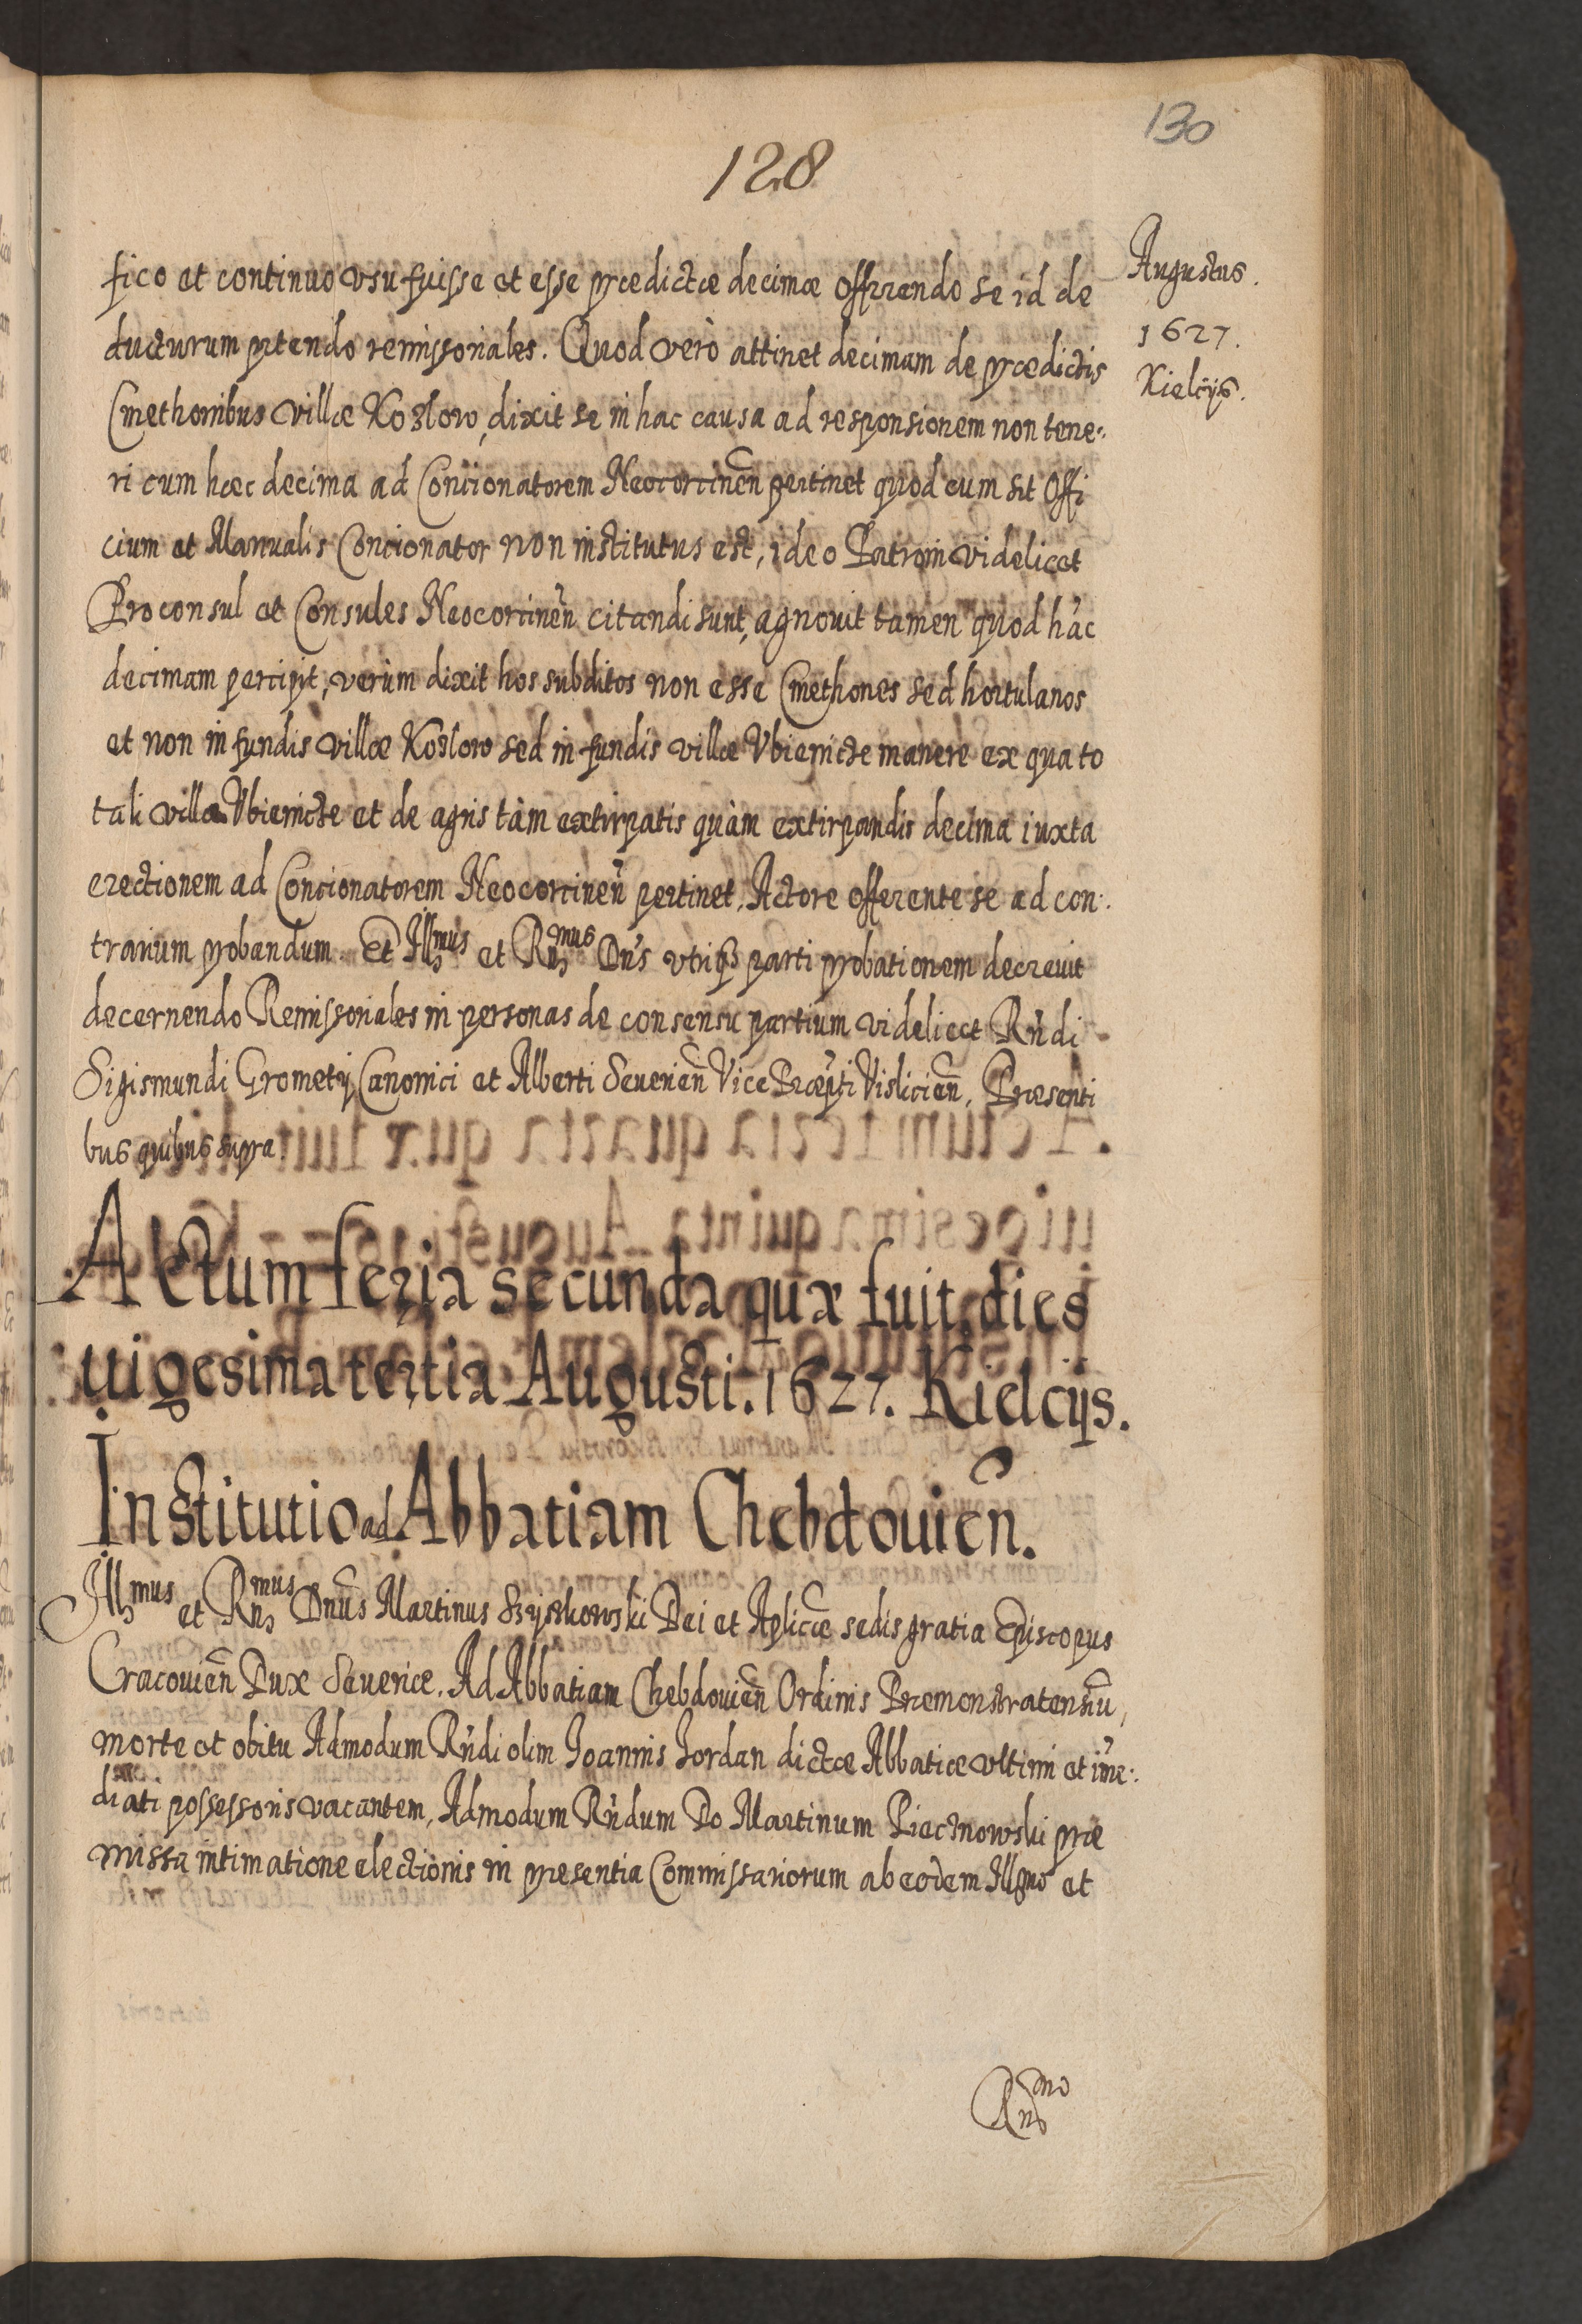 130
128
Augustus.
1627.
Kielcijs.
fico et continuo vsu fuisse et esse prædictæ decimæ offerendo se id de
ducturum petendo remissoriales. Quod verò attinet decimam de prædictis
Cmethonibus villæ Kozlow, dixit se in hac causa ad responsionem non tene:
ri cum hæc decima ad Concionatorem Neocorcineñ pertinet quod cum sit Offi
cium et Manualis Concionator non institutus est, ideo Patroni videlicet
Proconsul et Consules Neocorcineñ citandi sunt, agnouit tamen quod hãc
decimam percipit, verùm dixit hos subditos non esse Cmethones sed hortulanos
et non in fundis villæ Kozlow sed in fundis villæ Vbienicze manere ex qua to
tali villa Vbienicze et de agris tàm extirpatis quàm extirpandis decima iuxta
erectionem ad Concionatorem Neocorcineñ pertinet, Actore offerente se ad con:
trarium probandum. Et Illmus et Rmus Dñs vtriq parti probationem decreuit
decernendo Remissoriales in personas de consensu partium videlicet Rñdi
Sigismundi Grometij Canonici et Alberti Seuerieñ Vice Præpti Vislicieñ, Præsenti
bus quibus supra.
Actum feria secunda quæ fuit dies
uigesima tertia Augusti. 1627. Kielcijs.
Institutio ad Abbatiam Chebdouieñ.
Illmus et Rmus Dñus Martinus Szyszkowski Dei et Aplicæ sedis gratia Episcopus
Cracouieñ Dux Seueriæ. Ad Abbatiam Chebdouieñ Ordinis Præmonstratensiũ,
morte et obitu Admodum Rñdi olim Joannis Jordan dictæ Abbatiæ vltimi et im̃e:
diati possessoris vacantem, Admodum Rñdum Do Martinum Piecznowski præ
missa intimatione electionis in præsentia Commissariorum ab eodem Illmo et
Rmo